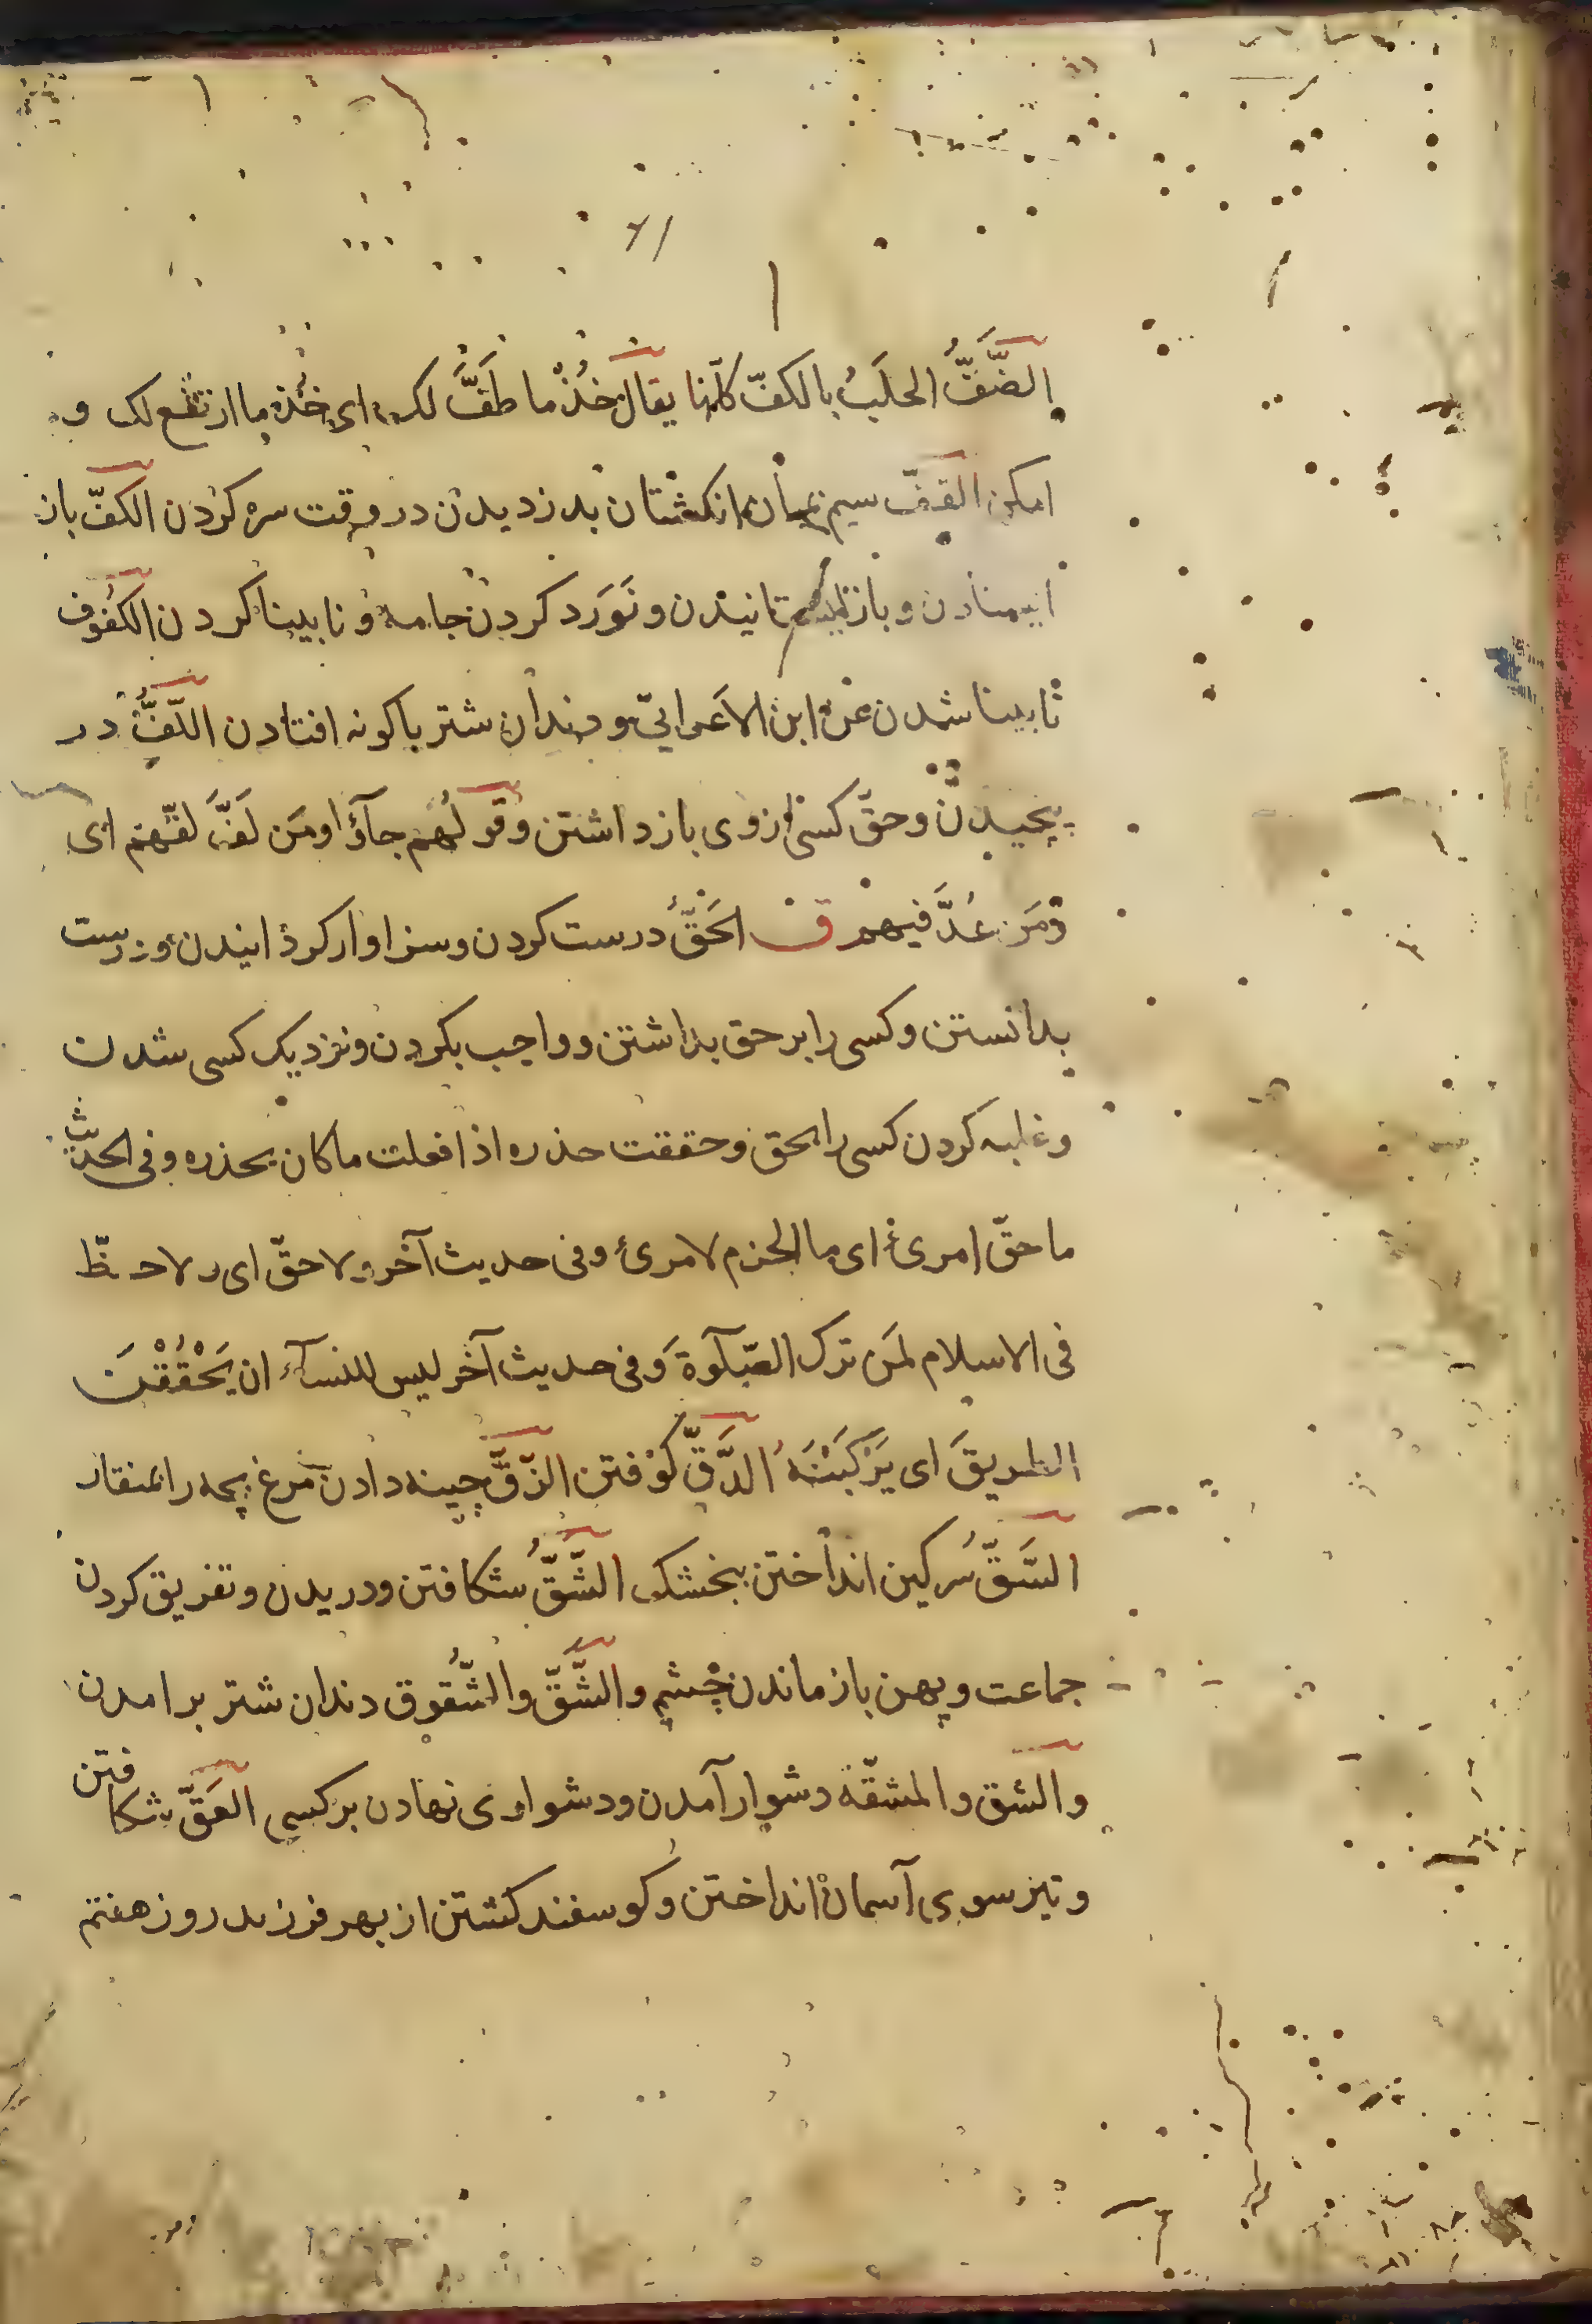 الضَّفُّ الحلَبُ بالكفّ كلّها يقال خُذْ ما طَفَّ لک ای خُذ ما ارتفع لک و
امکن القفّ سیم میان انکشتان بدزدیدن در وقت سره کردن الکفّ باز
ایستادن و باز تانیدن و نَوَرد کردن جامه و نابینا کردن الکُفُوف
نابینا شدن عن ابن الاعرابیّ و دندان شتر باکونه افتادن اللّفُّ در
پیچیدن و حقّ کسی از وی باز داشتن و قولُهم جآؤا و مَن لَفَّ لفّهم ای
وَمَن عُدَّ فیهم ق الحَقُّ درست کردن و سزاوار کردانیدن و درست
بدانستن و کسی را بر حق بداشتن و واجب بکردن و نزدیک کسی شدن
و غلبه کردن کسی را بحق و حققت حذره اذا فعلت ما کان یحذره و فی الحدیث
ما حقّ امرئ ای ما الحزم لامرئ و فی حدیث آخر و لا حقّ ای و لا حظّ
فی الاسلام لمَن ترک الصّلوة وَ فی حدیث آخر لیس للنسآء ان یَحْقُقْنَ
الطریقَ ای یَرْکَبْنَهُ الدَّقّ کوفتن الزَّقّ چینه دادن مرغ بچه را بمنقار
السَّقّ سرکین انداختن بنجشک الشَّقُّ شکافتن و دریدن و تفریق کردن
جماعت و پهن باز ماندن چشم و الشَّقّ و الشُّقوق دندان شتر برامدن
و الشق و المشقّة دشوار آمدن و دشواری نهادن بر کسی العَقّ شکافتن
و تیز سوی آسمان انداختن و کوسفند کشتن از بهر فرزند روز هفتم